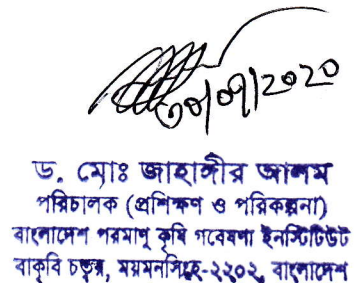 ৩০/০৭/২০২০
ড. মোঃ জাহাঙ্গীর আলম
পরিচালক (প্রশিক্ষণ ও পরিকল্পনা)
বাংলাদেশ পরমাণু কৃষি গবেষণা ইনস্টিটিউট
বাকৃবি চত্বর, ময়মনসিংহ-২২০২, বাংলাদেশ